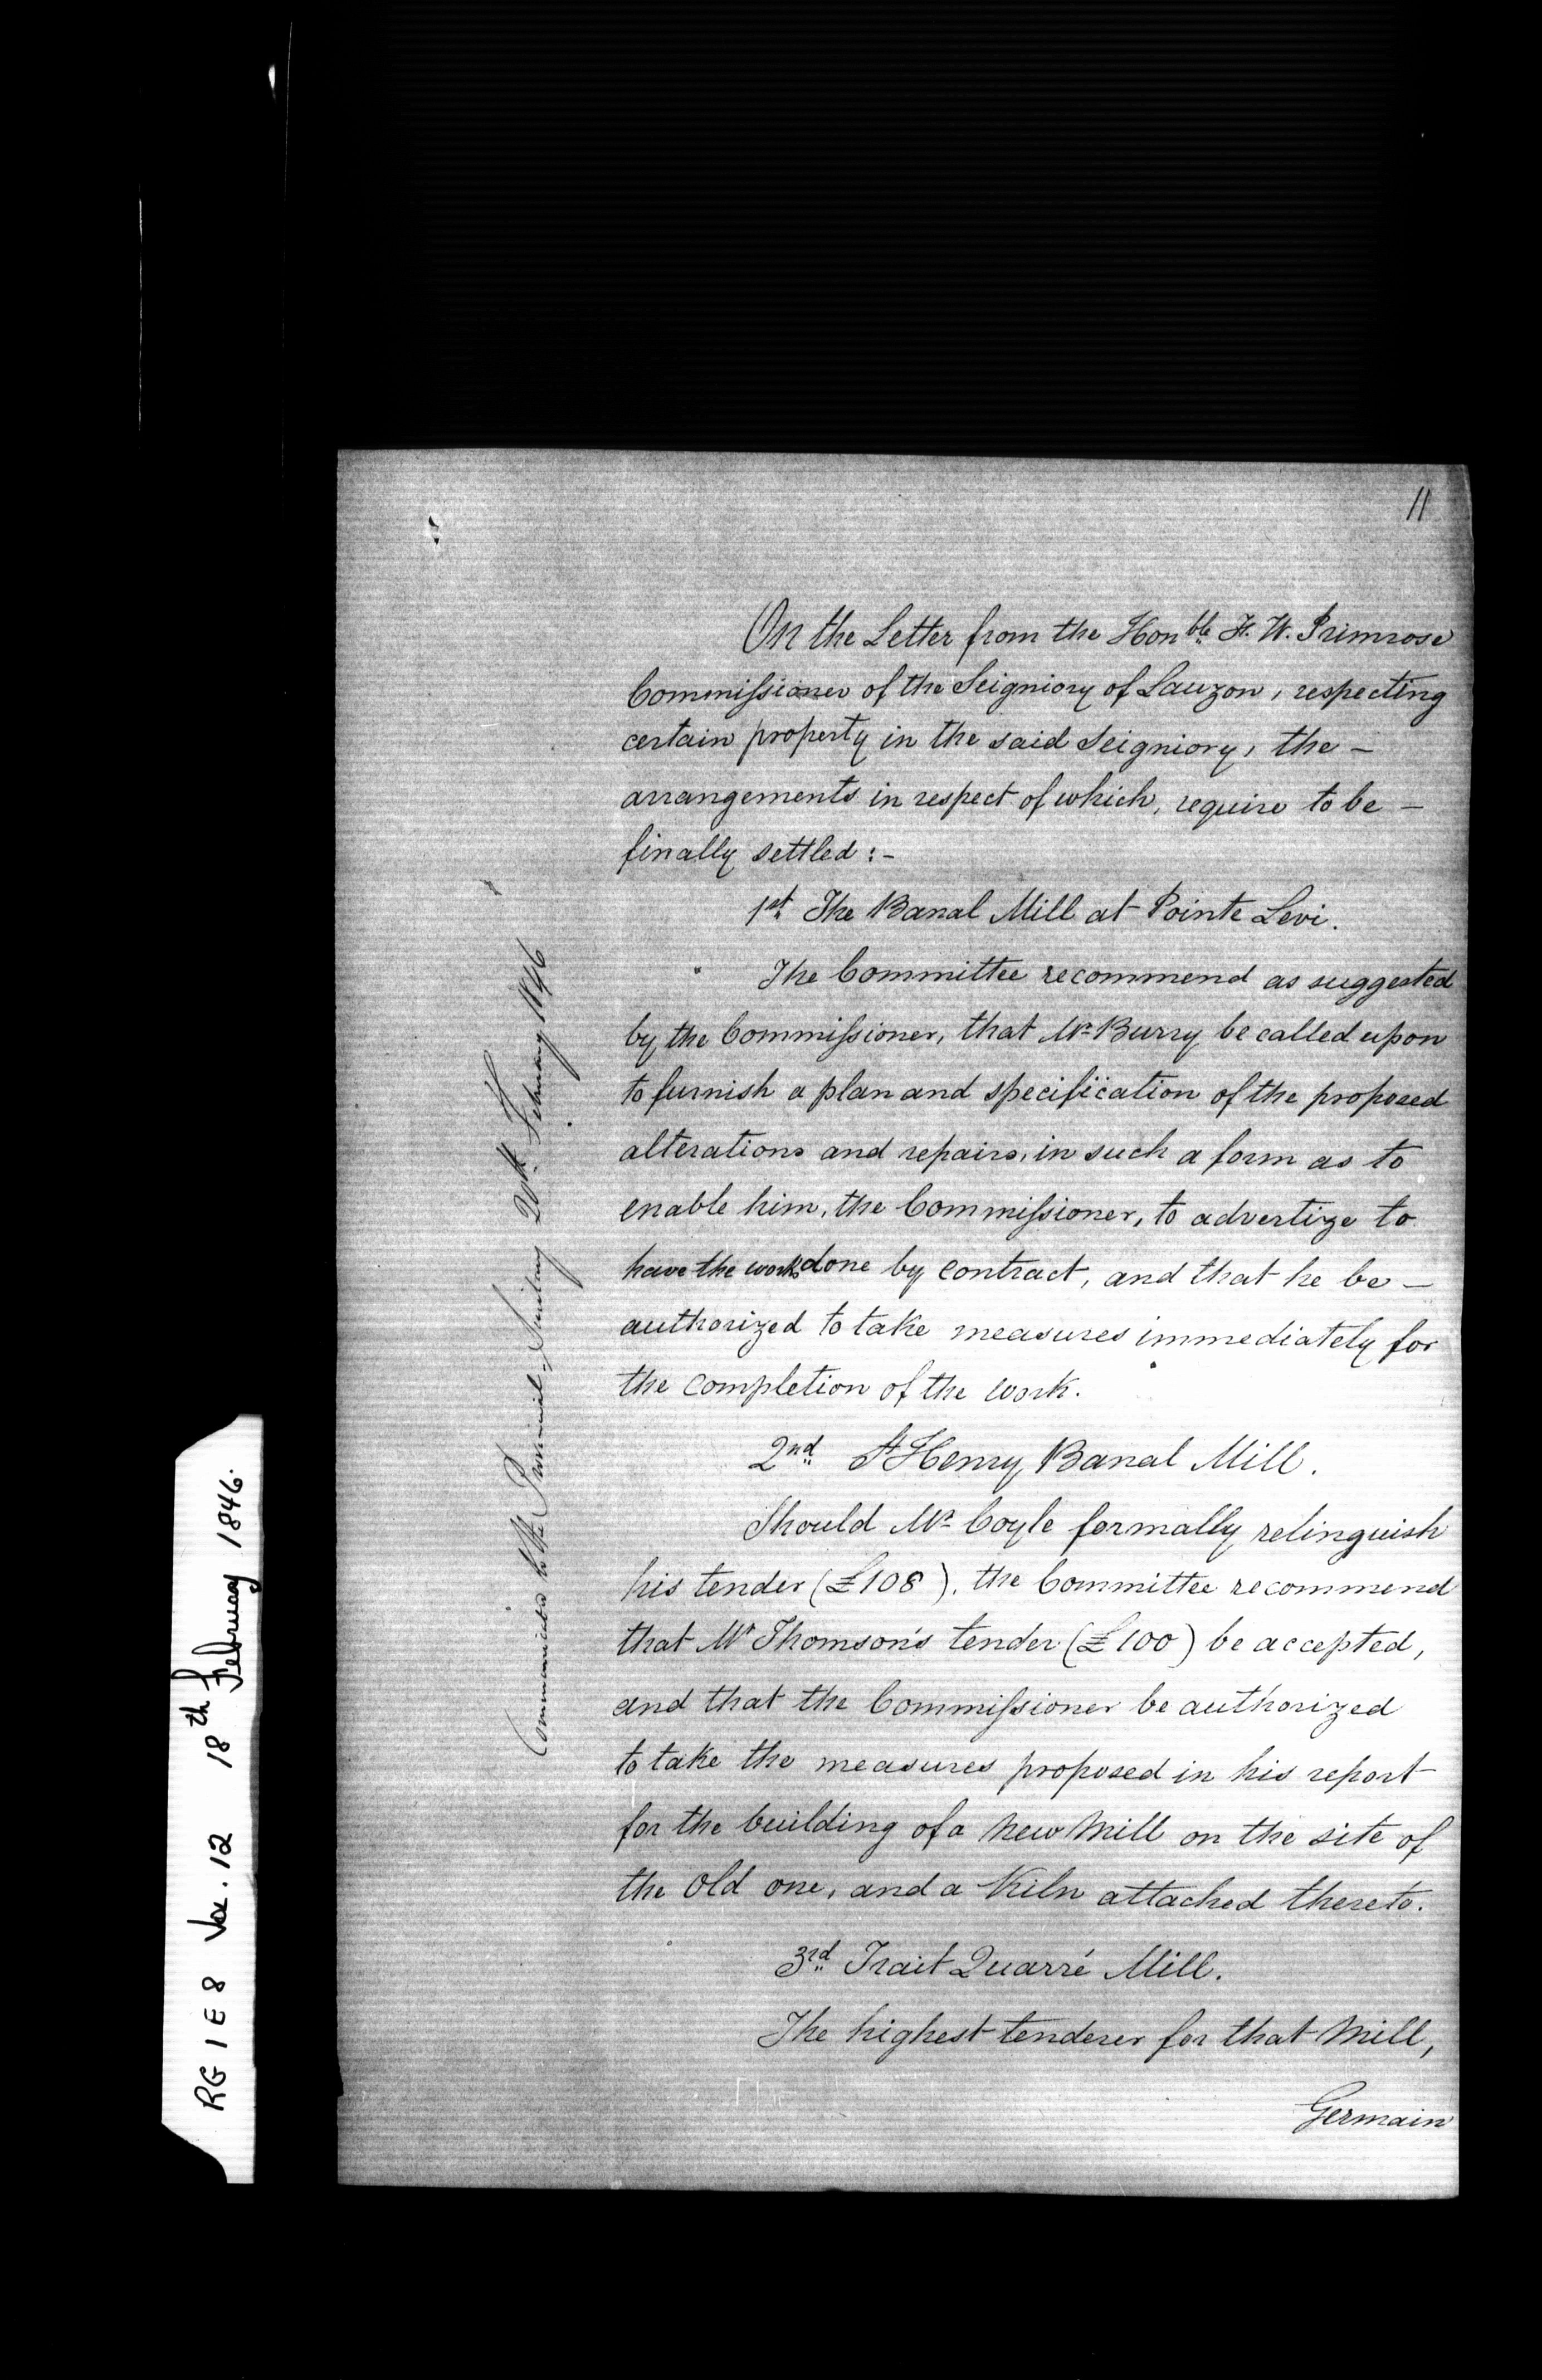 11
On the Letter from the Honble F. W. Primrose
Commissioner of the Seigniory of Lauzon, respecting
certain property in the said Seigniory, the -
arrangements in respect of which, require to be -
finally settled :-
1st The Banal Mill at Pointe Levi.
The Committee recommend as suggested
by the Commissioner, that Mr Burry be called upon
to furnish a plan and specification of the proposed
alterations and repairs, in such a form as to
enable him, the Commissioner, to advertize to
have the works done by contract, and that he be -
authorized to take measures immediately for
the completion of the work.
2nd St Henry Banal Mill.
Should Mr Coyle formally relinquish
his tender (£108), the Committee recommend
that Mr Thomson's tender (£100) be accepted,
and that the Commissioner be authorized
to take the measures proposed in his report
for the building of a New Mill on the site of
the old one, and a Kiln attached thereto.
3rd Trait Quarré Mill.
The highest tenderer for that Mill,
Germain
Communicated to the Provincial Secretary 20th February 1846
RG 1 E 8 Vol. 12 18th February 1846.